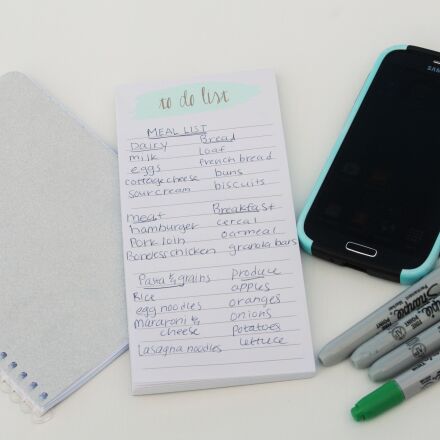 to do list
MEAL LIST
Dairy Bread
milk Loaf
eggs french bread
cottage cheese buns
sour cream biscuits
meat Breakfast
hamburger cereal
Pork loin oatmeal
Boneless chicken granola bars
Pasta & grains produce
Rice apples
egg noodles oranges
Mararoni & onions
cheese potatoes
Lasagna noodles lettuce
SAMSUNG
Sharpie